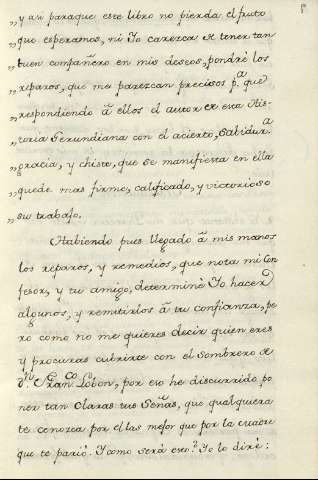 „ y asi paraque este libro no pierda el fruto
„ que esperamos, ni Yo carezca de tener tan
„ buen compañero en mis deseos, pondrè los
„ reparos, que me parezcan precisos p.ª que
„ respondiendo â ellos el autor de esta His-
„ toria Gerundiana con el acierto, Sabidur.ª
„ gracia, y chiste, que se manifiesta en ella
„ quede mas firme, calificado, y victorioso
„ su trabajo.
Habiendo pues llegado â mis manos
los reparos, y remedios, que nota mi Con
fesor, y tu amigo, determinè Yo hacer
algunos, y remitirlos â tu confianza, pe
ro como no me quieres decir quien eres
y procuras cubrirte con el Sombrero de
d.n Fran.co Lobon, por eso he discurrido po
ner tan claras tus Señas, que qualquiera
te conozca por ellas mejor que por la madre
que te pariò. Y como serà eso? Yo lo dirè: